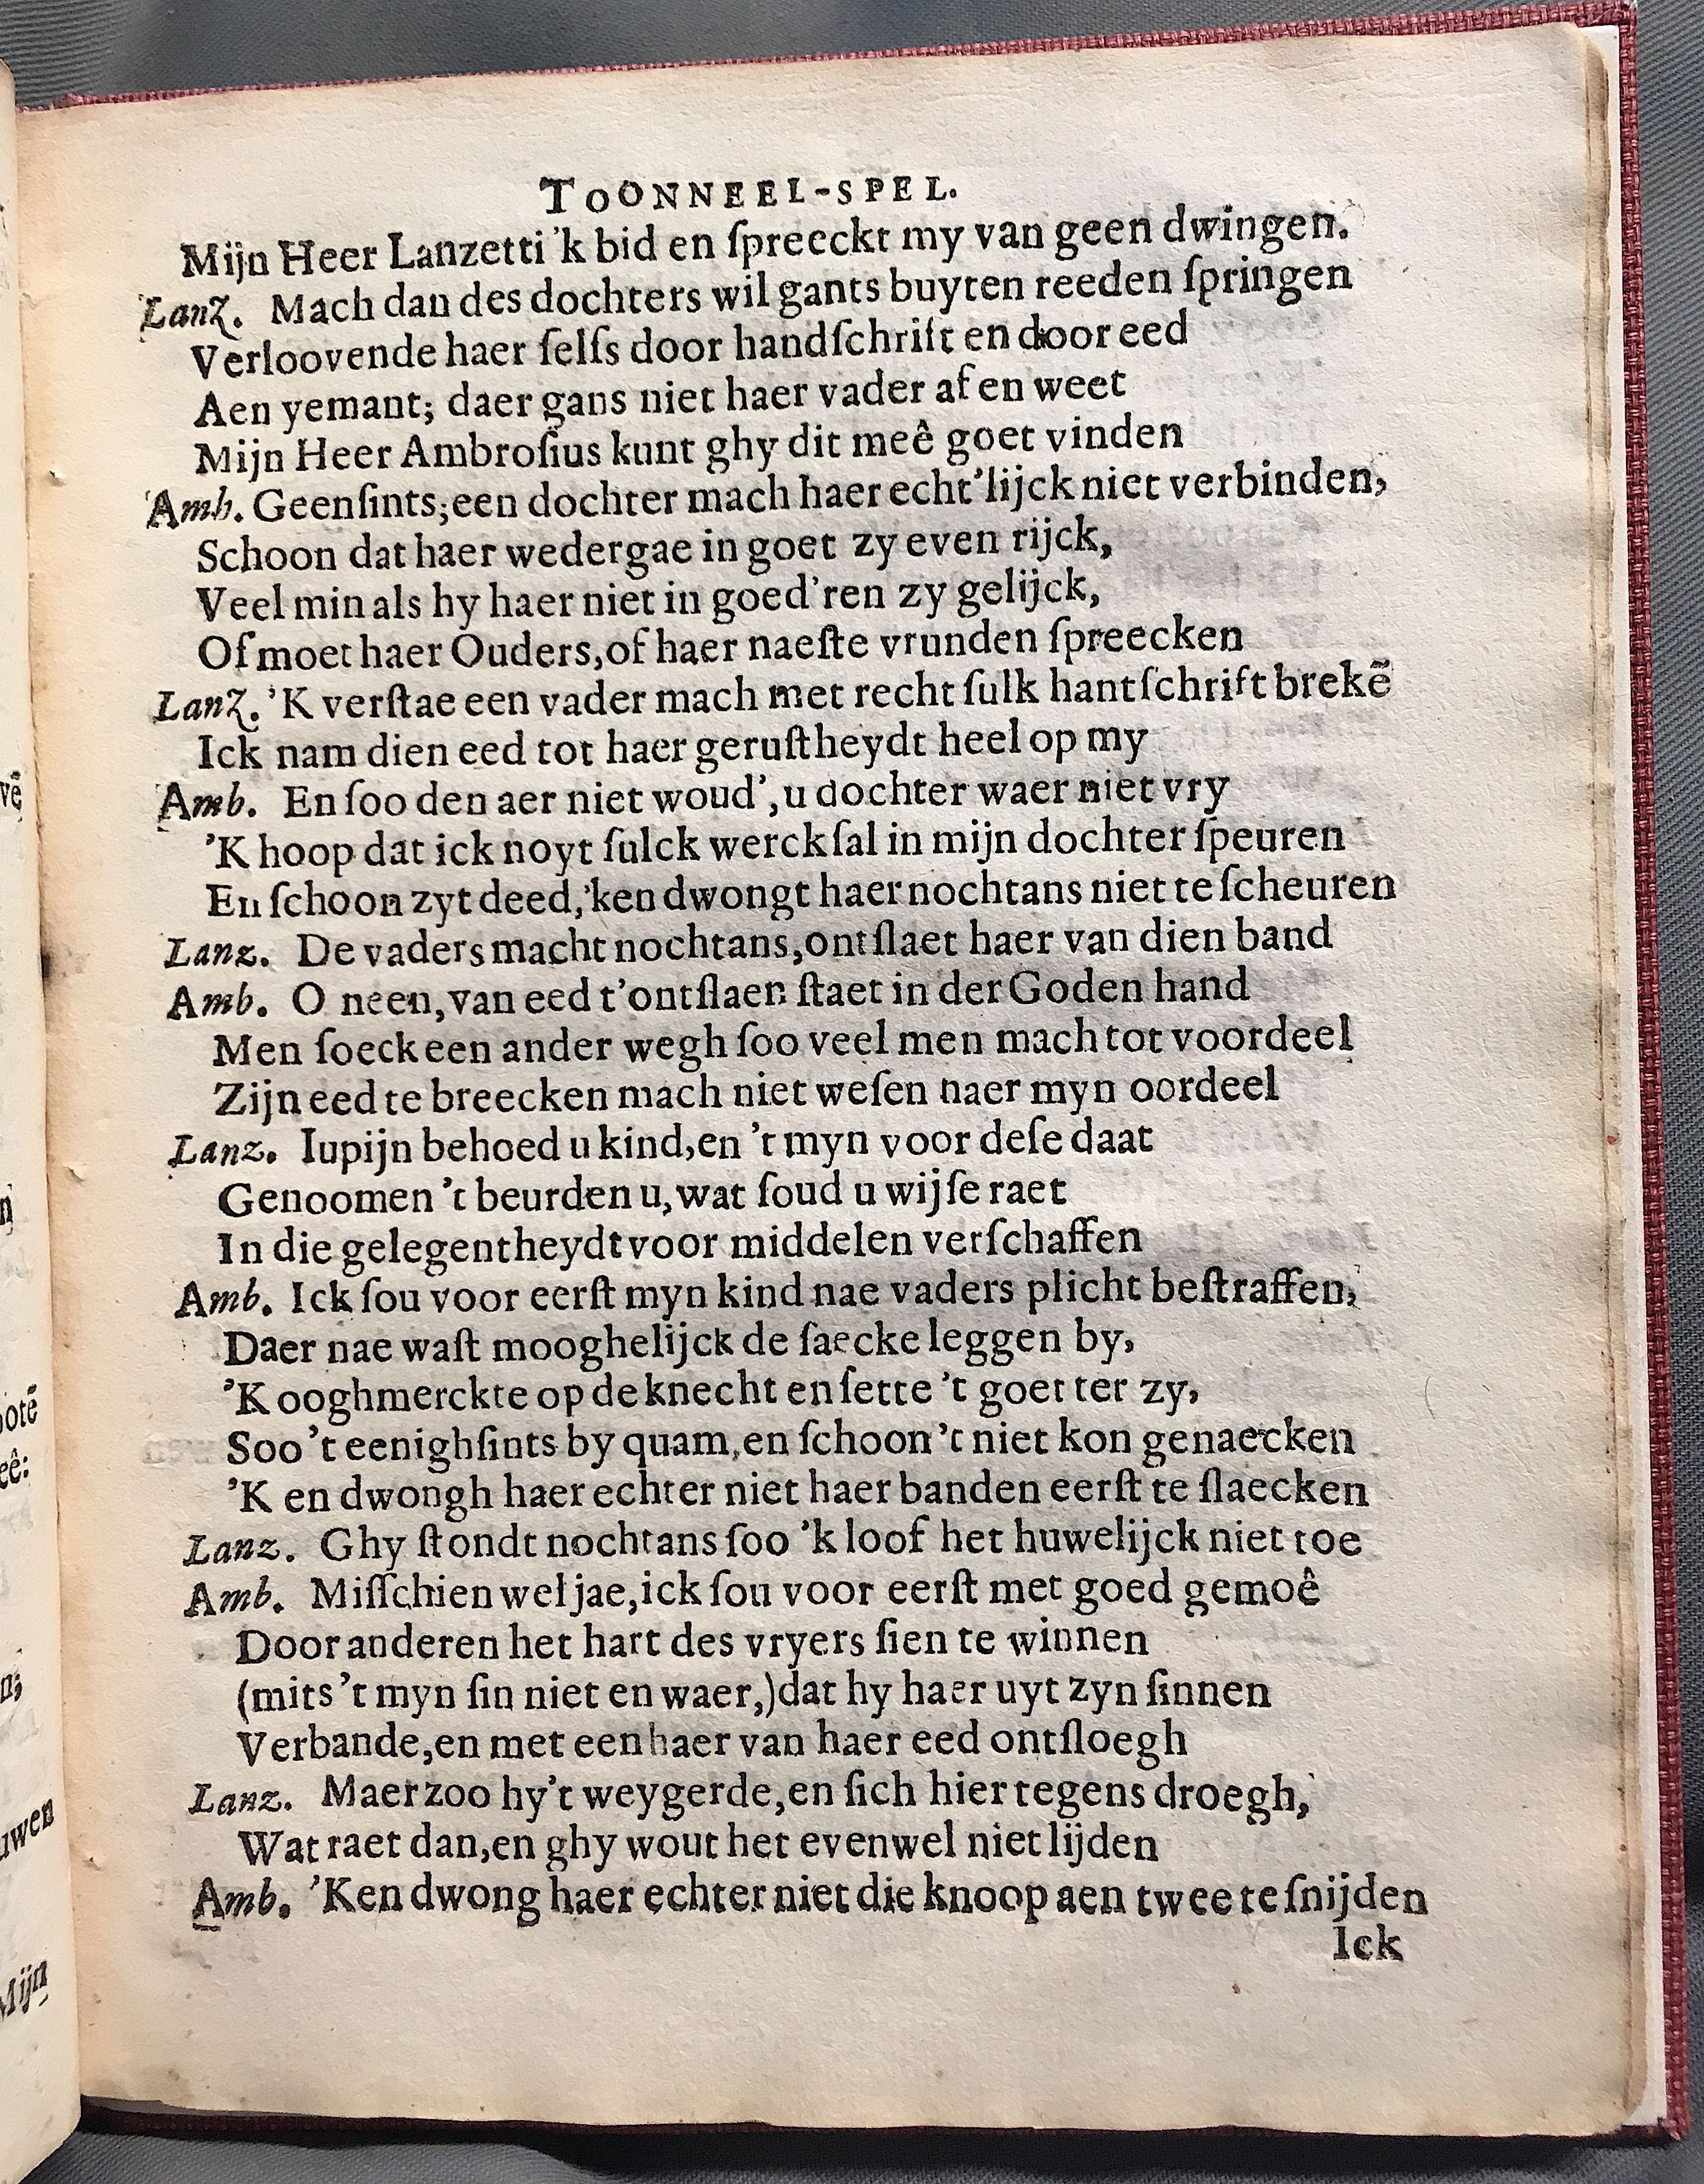 TOONNEEL-SPEL.
Mijn Heer Lanzetti 'k bid en ſpreeckt my van geen dwingen.
Lanz. Mach dan des dochters wil gants buyten reeden ſpringen
Verloovende haer ſelfs door handſchrift en door eed
Aen yemant; daer gans niet haer vader af en weet
Mijn Heer Ambroſius kunt ghy dit meê goet vinden
Amb. Geenſints; een dochter mach haer echt'lijck niet verbinden,
Schoon dat haer wedergae in goet zy even rijck,
Veel min als hy haer niet in goed'ren zy gelijck,
Of moet haer Ouders, of haer naeſte vrunden ſpreecken
Lanz. 'K verſtae een vader mach met recht ſulk hantſchrift brekẽ
Ick nam dien eed tot haer geruſtheydt heel op my
Amb. En ſoo den aer niet woud', u dochter waer niet vry
'K hoop dat ick noyt ſulck werck ſal in mijn dochter ſpeuren
En ſchoon zyt deed, 'ken dwongt haer nochtans niet te ſcheuren
Lanz. De vaders macht nochtans, ontſlaet haer van dien band
Amb. O neen, van eed t'ontſlaen ſtaet in der Goden hand
Men ſoeck een ander wegh ſoo veel men mach tot voordeel
Zijn eed te breecken mach niet weſen naer myn oordeel
Lanz. Iupijn behoed u kind, en 't myn voor deſe daat
Genoomen 't beurden u, wat ſoud u wijſe raet
In die gelegentheydt voor middelen verſchaffen
Amb. Ick ſou voor eerſt myn kind nae vaders plicht beſtraffen,
Daer nae waſt mooghelijck de ſaecke leggen by,
'K ooghmerckte op de knecht en ſette 't goet ter zy,
Soo 't eenighſints by quam, en ſchoon 't niet kon genaecken
'K en dwongh haer echter niet haer banden eerſt te ſlaecken
Lanz. Ghy ſtondt nochtans ſoo 'k loof het huwelijck niet toe
Amb. Miſſchien wel jae, ick ſou voor eerſt met goed gemoê
Door anderen het hart des vryers ſien te winnen
(mits 't myn ſin niet en waer,) dat hy haer uyt zyn ſinnen
Verbande, en met een haer van haer eed ontſloegh
Lanz. Maer zoo hy't weygerde, en ſich hier tegens droegh,
Wat raet dan, en ghy wout het evenwel niet lijden
Amb. 'Ken dwong haer echter niet die knoop aen twee te ſnijden
Ick